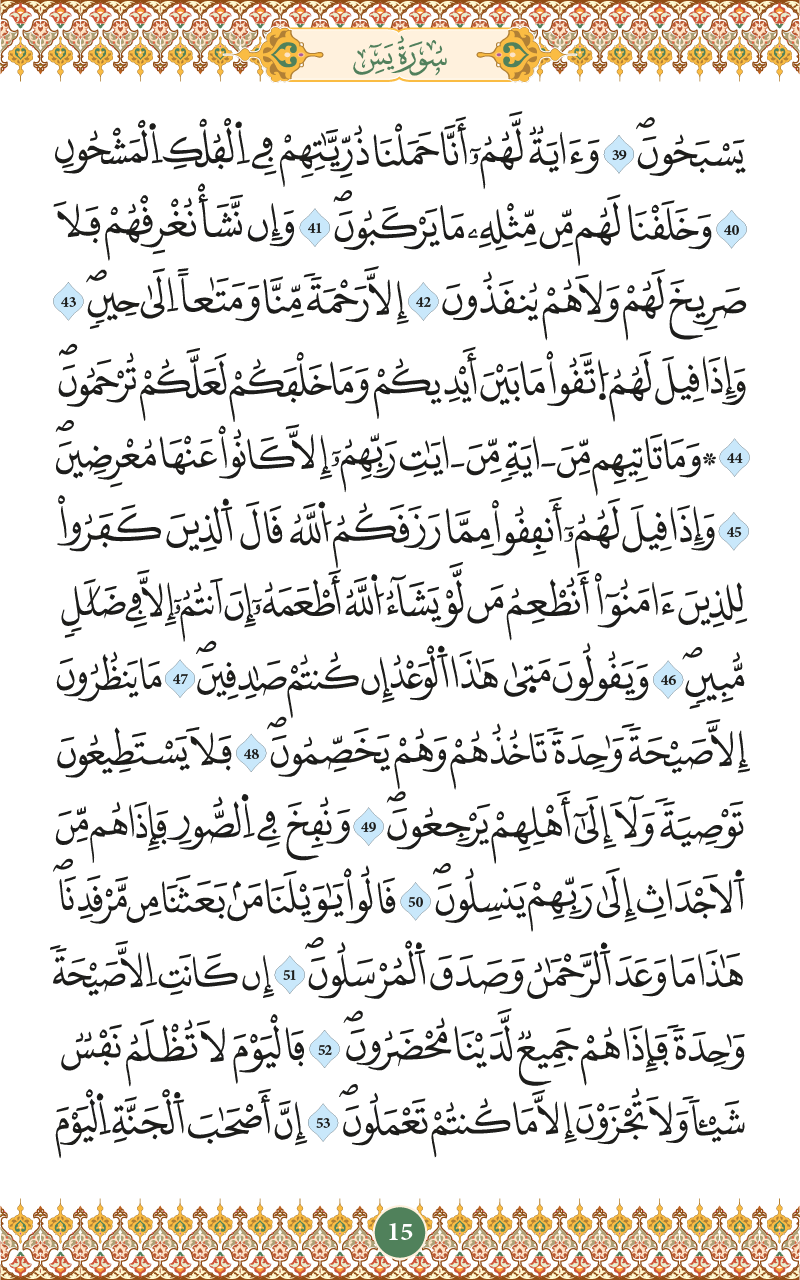 سُورَةُ يَسٓ
يَسْبَحُونَۖ 39 وَءَايَةٞ لَّهُمُۥٓ أَنَّا حَمَلْنَا ذُرِّيَّٰتِهِمْ فِے اِ۬لْفُلْكِ اِ۬لْمَشْحُونِ
40 وَخَلَقْنَا لَهُم مِّن مِّثْلِهِۦ مَا يَرْكَبُونَۖ 41 وَإِن نَّشَأْ نُغْرِقْهُمْ فَلَا
صَرِيخَ لَهُمْ وَلَا هُمْ يُنقَذُونَ 42 إِلَّا رَحْمَةٗ مِّنَّا وَمَتَٰعاً اِلَىٰ حِينٖۖ 43
وَإِذَا قِيلَ لَهُمُ اُ۪تَّقُواْ مَا بَيْنَ أَيْدِيكُمْ وَمَا خَلْفَكُمْ لَعَلَّكُمْ تُرْحَمُونَۖ
44 ۞ وَمَا تَاتِيهِم مِّنَ اٰيَةٖ مِّنَ اٰيَٰتِ رَبِّهِمُۥٓ إِلَّا كَانُواْ عَنْهَا مُعْرِضِينَۖ
45 وَإِذَا قِيلَ لَهُمُۥٓ أَنفِقُواْ مِمَّا رَزَقَكُمُ اُ۬للَّهُ قَالَ اَ۬لذِينَ كَفَرُواْ
لِلذِينَ ءَامَنُوٓاْ أَنُطْعِمُ مَن لَّوْ يَشَآءُ اُ۬للَّهُ أَطْعَمَهُۥٓ إِنَ اَنتُمُۥٓ إِلَّا فِے ضَلَٰلٖ
مُّبِينٖۖ 46 وَيَقُولُونَ مَتَىٰ هَٰذَا اَ۬لْوَعْدُ إِن كُنتُمْ صَٰدِقِينَۖ 47 مَا يَنظُرُونَ
إِلَّا صَيْحَةٗ وَٰحِدَةٗ تَاخُذُهُمْ وَهُمْ يَخَصِّمُونَۖ 48 فَلَا يَسْتَطِيعُونَ
تَوْصِيَةٗ وَلَآ إِلَىٰٓ أَهْلِهِمْ يَرْجِعُونَۖ 49 وَنُفِخَ فِے اِ۬لصُّورِ فَإِذَا هُم مِّنَ
اَ۬لَاجْدَاثِ إِلَىٰ رَبِّهِمْ يَنسِلُونَۖ 50 قَالُواْ يَٰوَيْلَنَا مَنۢ بَعَثَنَا مِن مَّرْقَدِنَاۖ
هَٰذَا مَا وَعَدَ اَ۬لرَّحْمَٰنُ وَصَدَقَ اَ۬لْمُرْسَلُونَۖ 51 إِن كَانَتِ اِلَّا صَيْحَةٗ
وَٰحِدَةٗ فَإِذَا هُمْ جَمِيعٞ لَّدَيْنَا مُحْضَرُونَۖ 52 فَالْيَوْمَ لَا تُظْلَمُ نَفْسٞ
شَيْـٔاٗ وَلَا تُجْزَوْنَ إِلَّا مَا كُنتُمْ تَعْمَلُونَۖ 53 إِنَّ أَصْحَٰبَ اَ۬لْجَنَّةِ اِ۬لْيَوْمَ
15